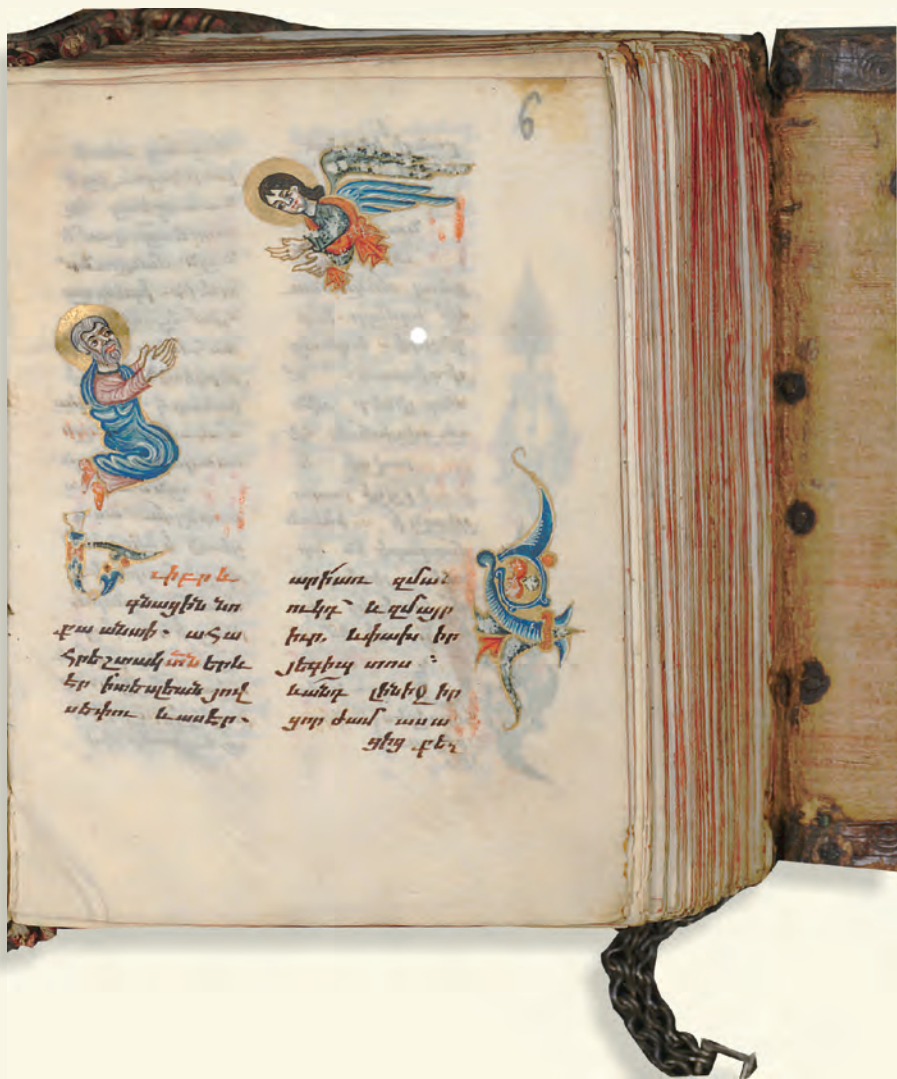 6
Եւ իբրև
գնացին նո
քա անտի. ահա
հրեշտակ տն երև
էր ի տեսլեան յով
սեփու և ասէր.
արի առ զման
ուկդ՝ և զմայր
իւր. և փախիր
յեգիպտոս :
և անդ լինիջիր
ցոր ժամ ասա
ցից քեզ